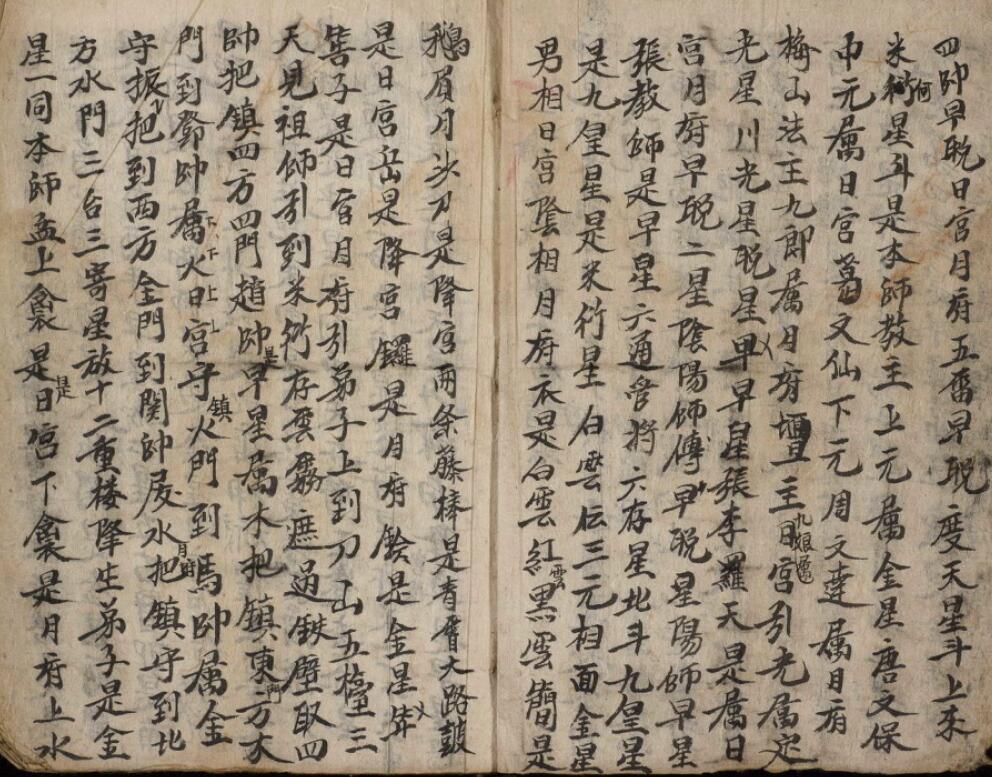 四帥早晚日宮月府五雷早晚度天星斗上來
米何星斗是本師教主上元属金星唐文保
中元属日宮葛文仙下元周文達属日府
梅山法王九郎属日府壇主日宮引光属定
光星川光星晚星早早星張李羅天是属日
宮月府早晚二星陰陽師傅早晚星陽師早星
張教師是早星六通管將六存星北斗九皇星
是九皇星是米行星白雲伝三元相面金星
男相日宮陰相月府衣是白雲紅黑雲簡是
鵝眉月沙刀是降宮兩条藤棒是青大路鼓
是日宮岳是降宮鑼是月府鈴是金星
子是日宮月府引弟子上到刀山五三
天見祖師引到米行存雲霧遮過鉄壁取四
帥把鎮四方四門趙帥是早星属木把鎮東方木
門到鄧帥属火日宮守鎮火門到馬帥属金
守振把到西方金門到関帥属水把鎮守到北
方水門三台三寄星放十二重楼降生弟子是金
星一同本師孟上禽是日宮下禽是月府上水